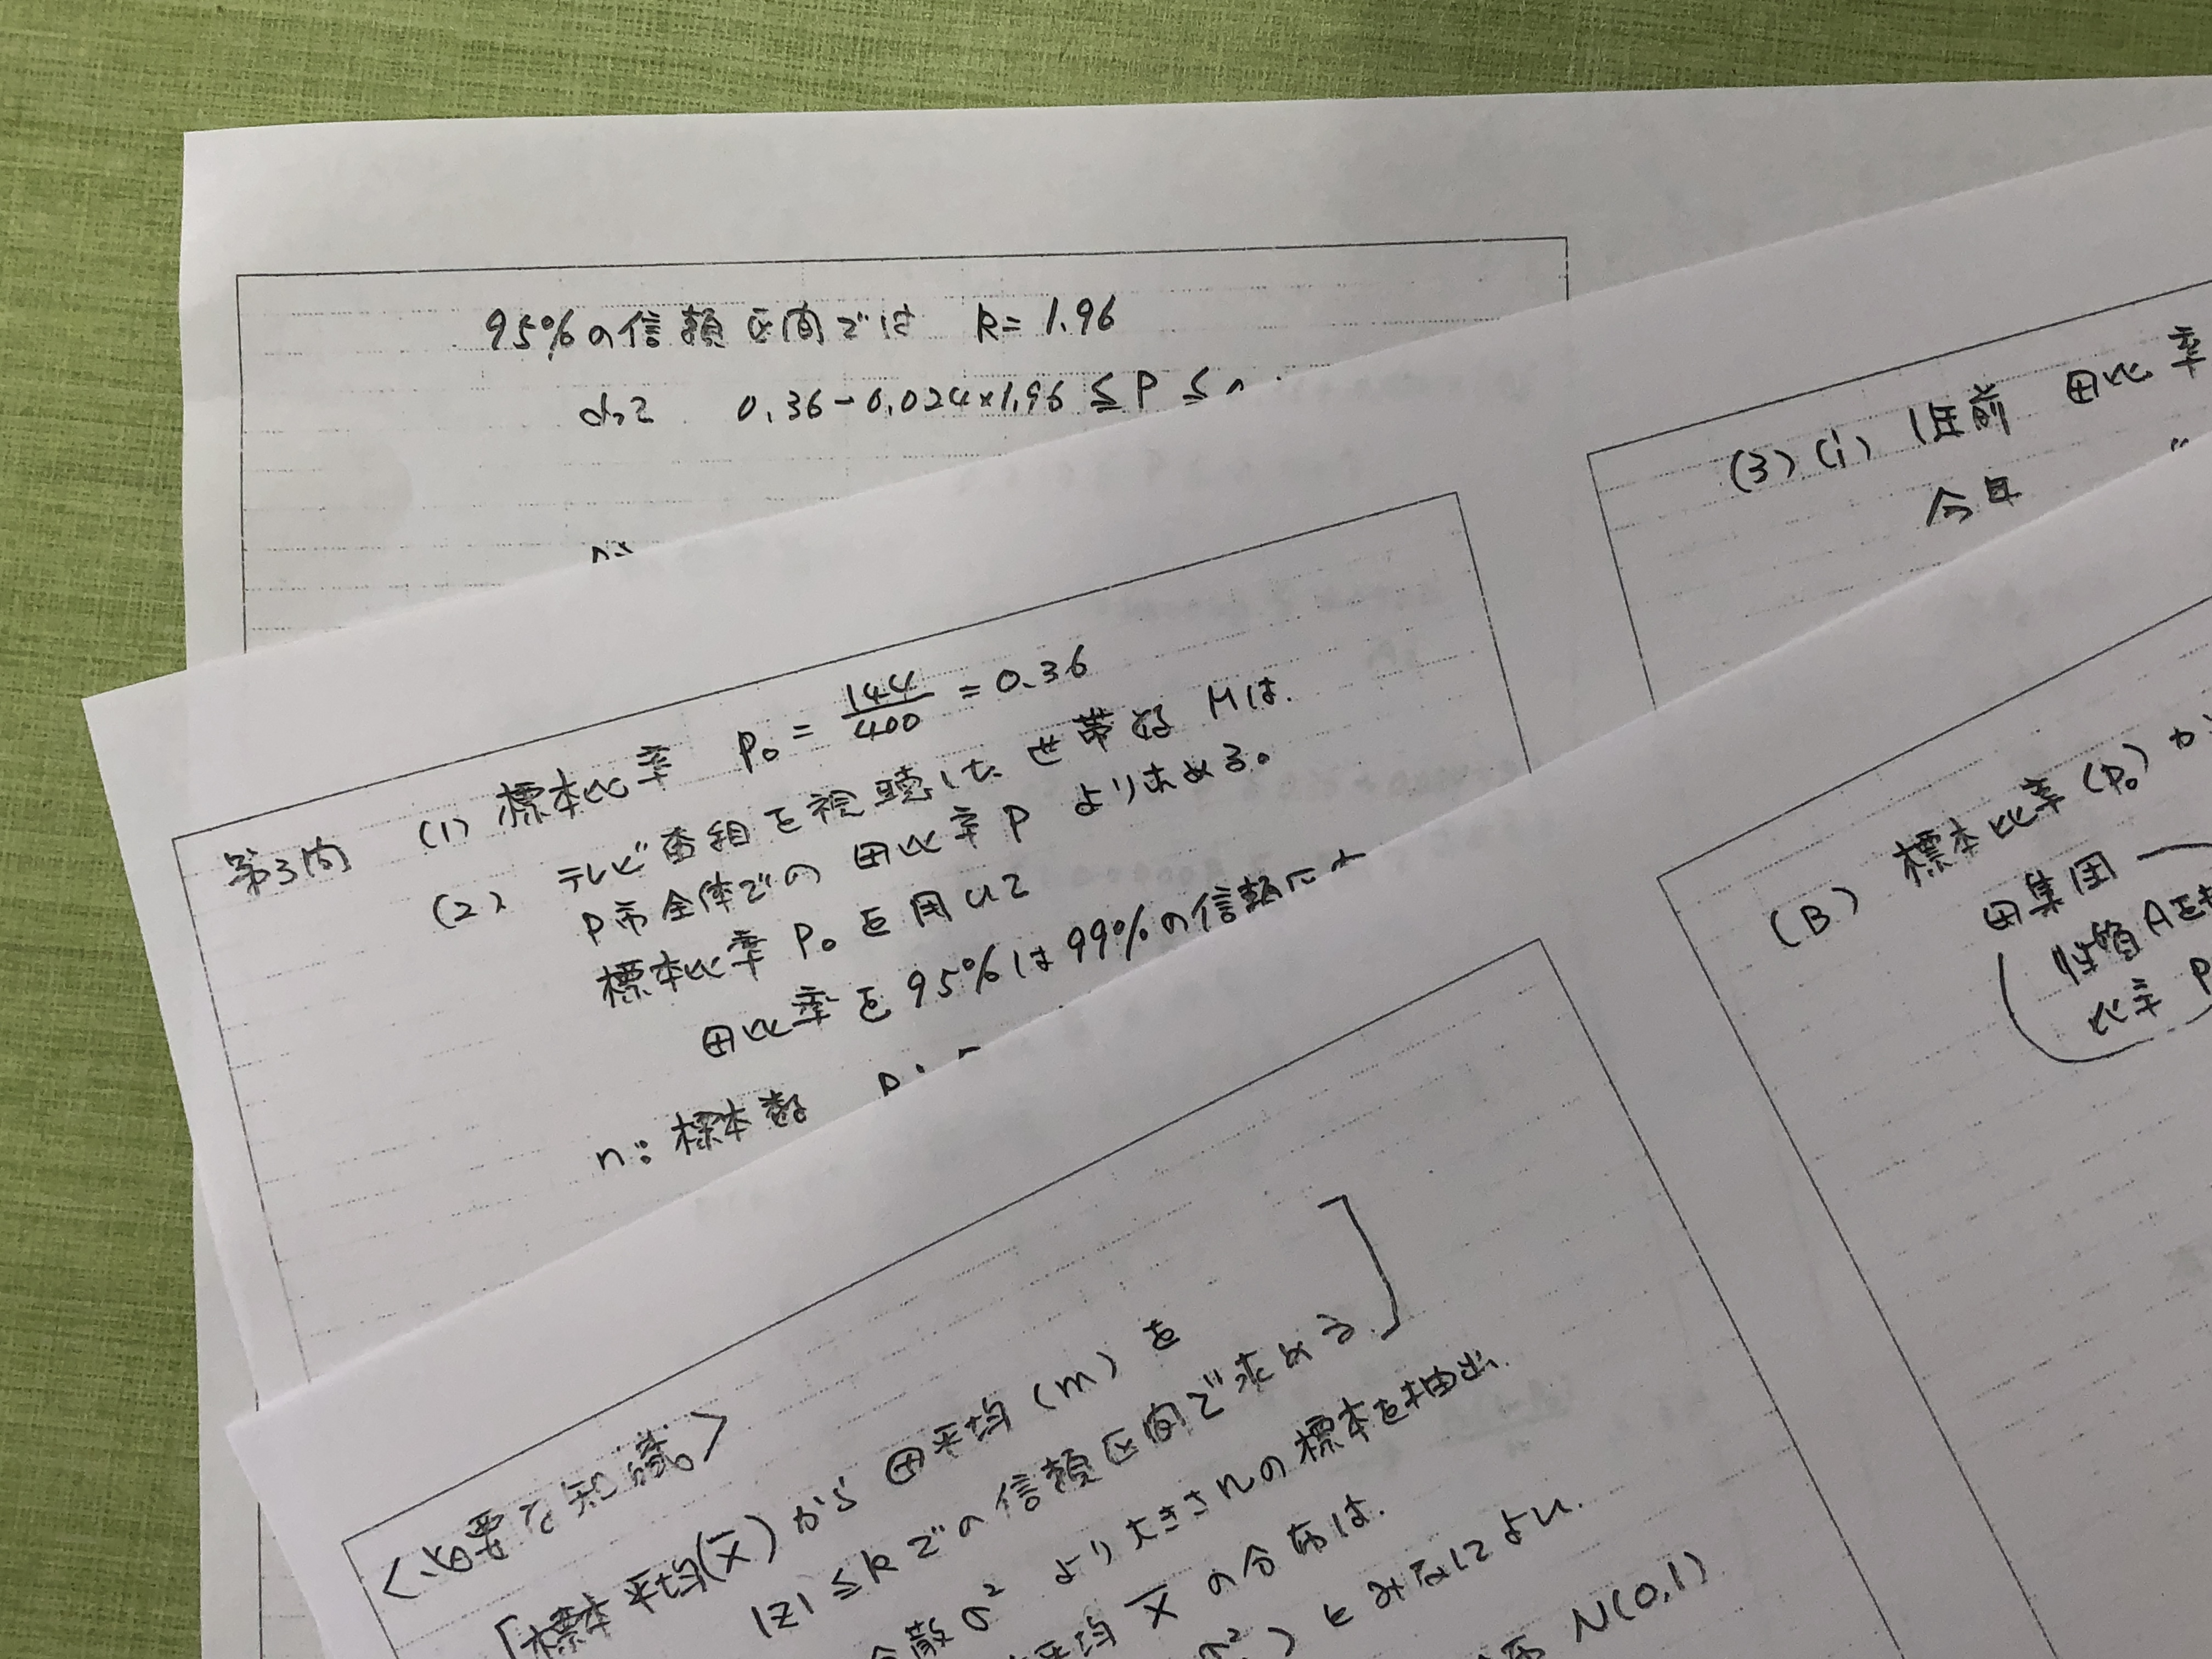 95%の信頼区間では k=1.96
よって 0.36-0.024×1.96 ≦ P ≦
(3)(i) 1年前 母比率
今年 〃
第3問 (1) 標本比率 p₀ = 144/400 = 0.36
(2) テレビ番組を視聴した世帯数Mは.
P市全体での母比率Pより求める。
標本比率P₀を用いて
母比率を95%は99%の信頼
n: 標本数
(B) 標本比率(p₀)か
母集団
性質Aをも
比率 P
<必要な知識>
[標本平均(X̄)から母平均(m)を
|Z|≦kでの信頼区間で求める.]
分散σ²より大きさnの標本を抽出.
平均X̄の分布は.
σ²)とみなしてよい.
N(0,1)